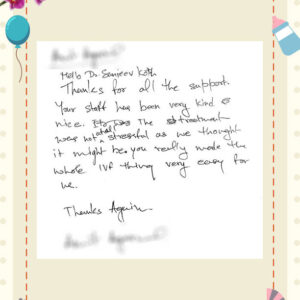 Hello Dr. Sanjeev
Thanks for all the support.
Your staff has been very kind &
nice. The treatment
was not at all stressful as we thought
it might be, you really made the
whole IVF thing very easy for
me.
Thanks Again.